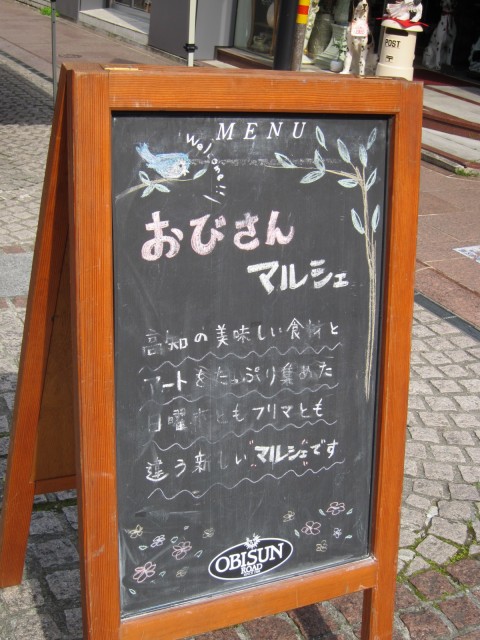 POST
MENU
Welcome!!
おびさん
マルシェ
高知の美味しい食材と
アートをたっぷり集めた
日曜市ともフリマとも
違う新しい"マルシェ"です
OBISUN
ROAD